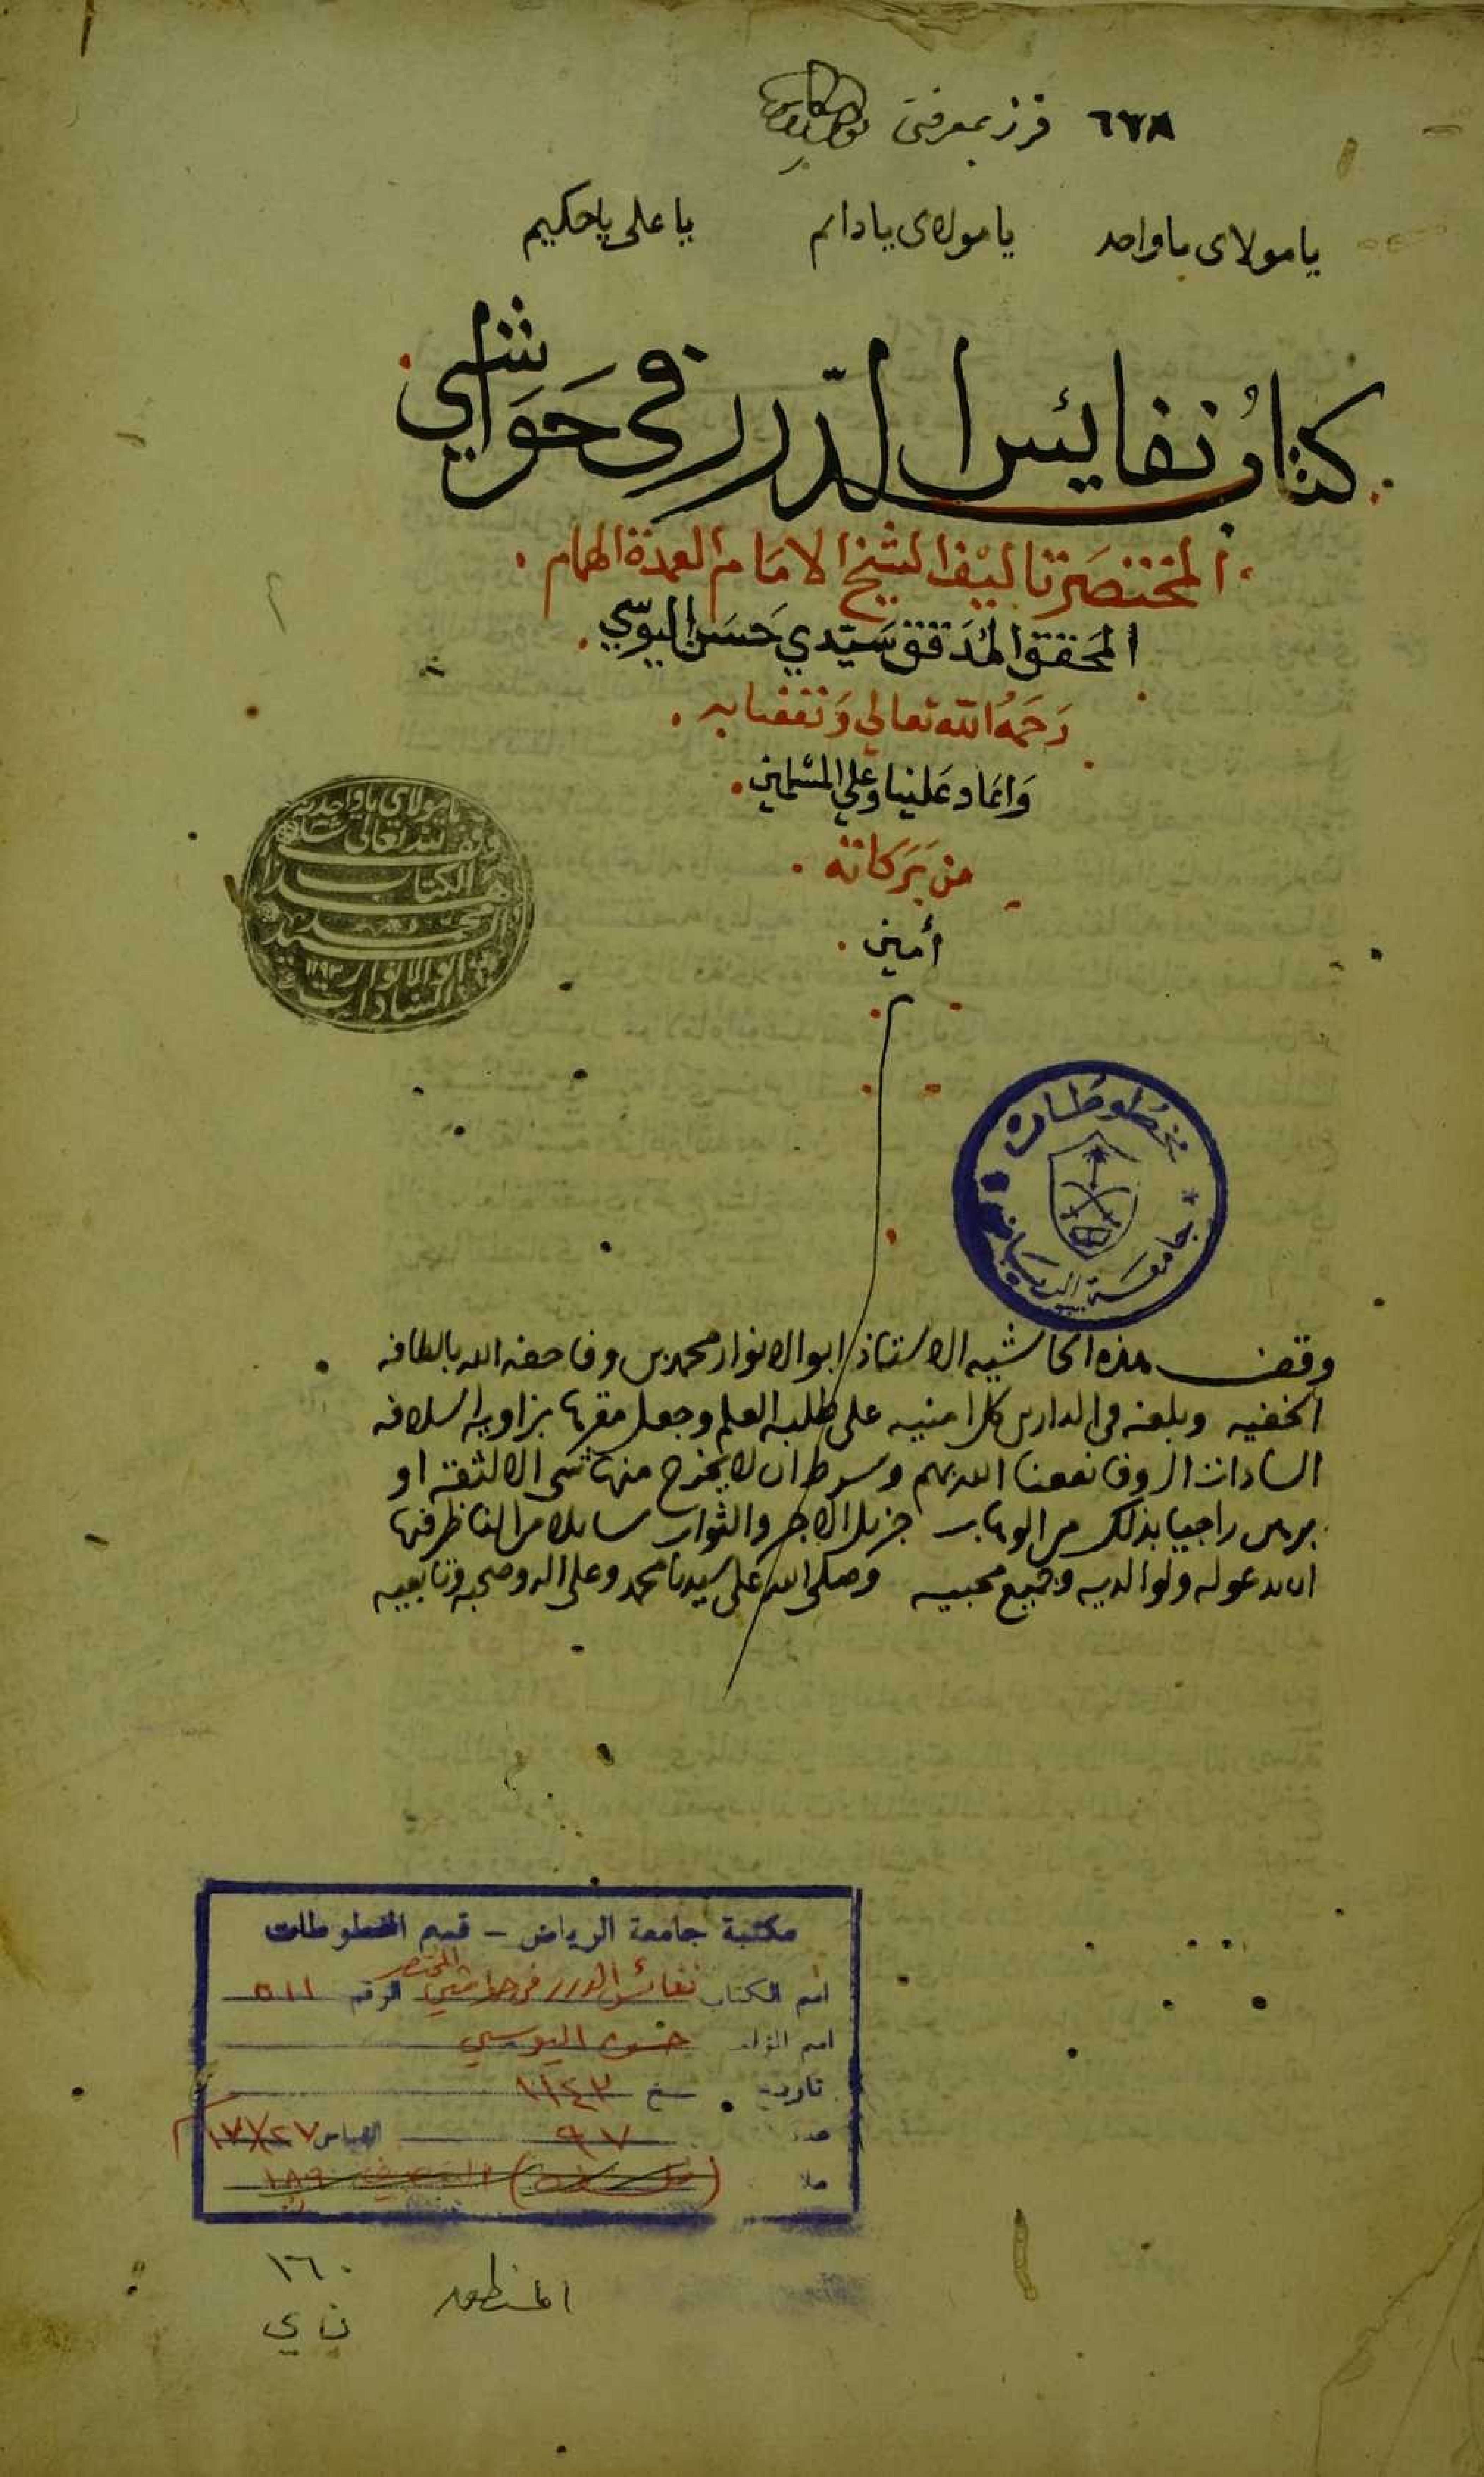 ٦٧٨ فرز بمعرفتى
يا مولاى يا واحد يا مولاى يا دائم يا على يا حكيم
كتاب نفائس الدّرر فى حَوَاشي
المختصَر تاليف الشيخ الامَام العمدة الهمام
المحَقق المُدَقق سَيّدي حَسَن اليوسّي
رَحمَهُ الله تعالي وَنفعنا به
وَاعَاد عَلينا وعَلي المسْلمين
من بَرَكاته
أمين
يا مولاي يا واحد
وقف لله تعالى
هذا الكتاب
السيد محمد
ابو الانوار ١١٩٣
السادات
مخطوطات
جامعة الرياض
وقف هذه الحاشيه الاستاذ ابو الانوار محمد بن وفا حفه الله بالطافه
الخفيه وبلغه فى الدارين كل امنيه على طلبة العلم وجعل مقرها بزاوية اسلافه
السادات الوفا نفعنا الله بهم وشرط ان لا يخرج منها شى الا لثقة او
برهن راجيا بذلك من الوهاب جزيل الاجر والثواب سايلا من الناظر فيها
ان يدعو له ولوالديه وجميع محبيه وصلى الله على سيدنا محمد وعلى اله وصحبه وتابعيه
مكتبة جامعة الرياض - قسم المخطوطات
اسم الكتاب نفائس الدرر فى حواشي المختصر الرقم ٥١١
اسم المؤلف حسن اليوسي
تاريخ نسخ ١١٤٣
عدد ٩٧ القياس ٢٧×١٧
١٦٠
ن ي